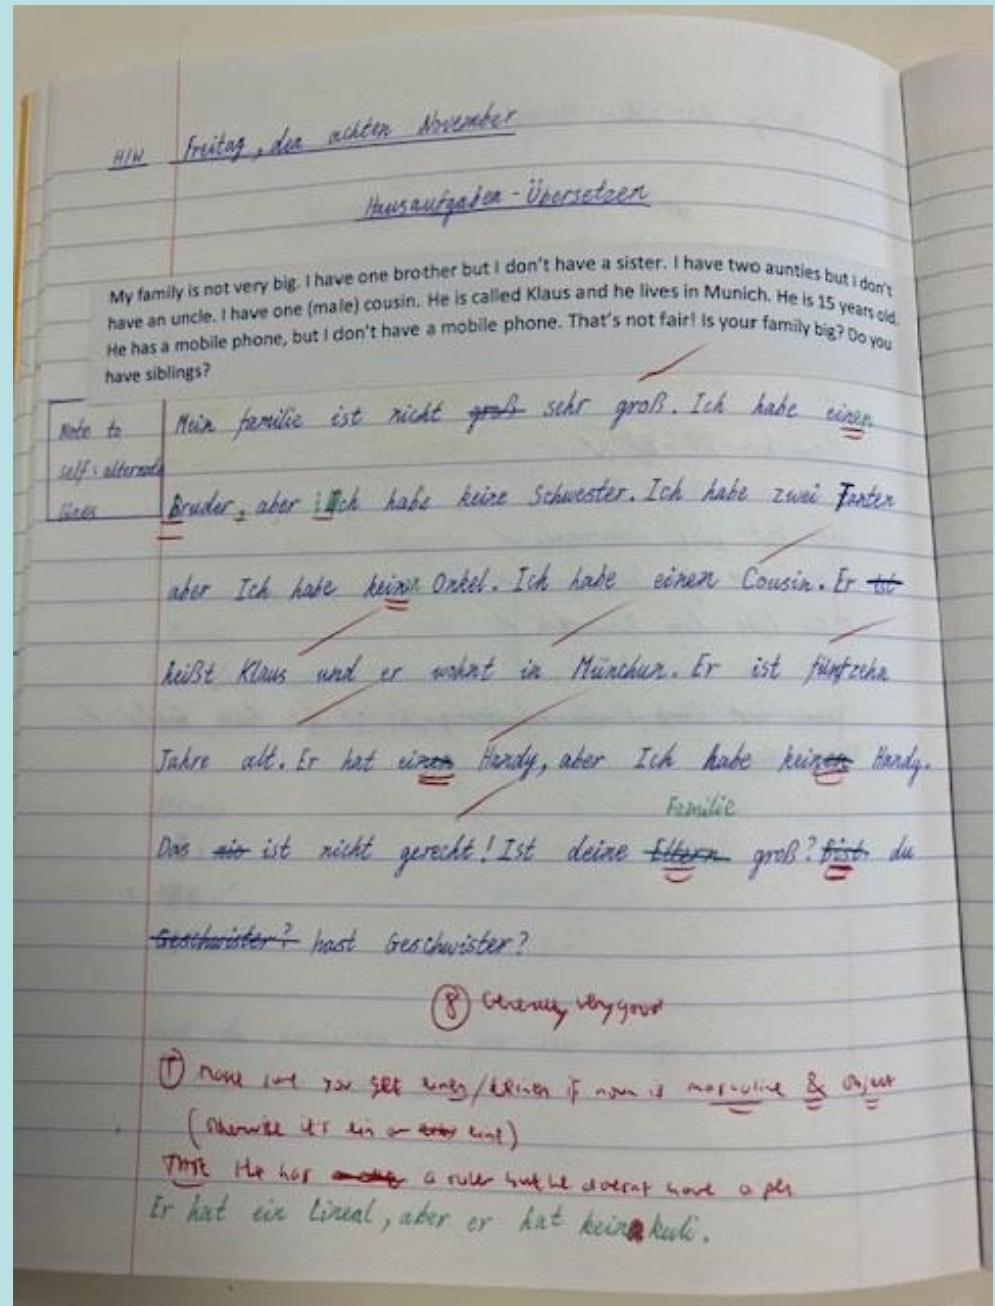 H/W Freitag, den achten November
Hausaufgaben - Übersetzen
My family is not very big. I have one brother but I don't have a sister. I have two aunties but I don't
have an uncle. I have one (male) cousin. He is called Klaus and he lives in Munich. He is 15 years old.
He has a mobile phone, but I don't have a mobile phone. That's not fair! Is your family big? Do you
have siblings?
Note to
self: alternate
lines
Mein familie ist nicht groß sehr groß. Ich habe einen
Bruder, aber ich habe keine Schwester. Ich habe zwei Tanten
aber Ich habe keinen Onkel. Ich habe einen Cousin. Er ist
heißt Klaus und er wohnt in Münchun. Er ist fünfzehn
Jahre alt. Er hat einen Handy, aber Ich habe keinen Handy.
Familie
Das ist nicht gerecht! Ist deine Eltern groß? Bist du
Geschwister? hast Geschwister?
8 Generally very good
T Make sure you get einen/keinen if noun is masculine & object
(otherwise it's ein or eine)
He has a ruler but he doesn't have a pen
Er hat ein Lineal, aber er hat kein kuli.